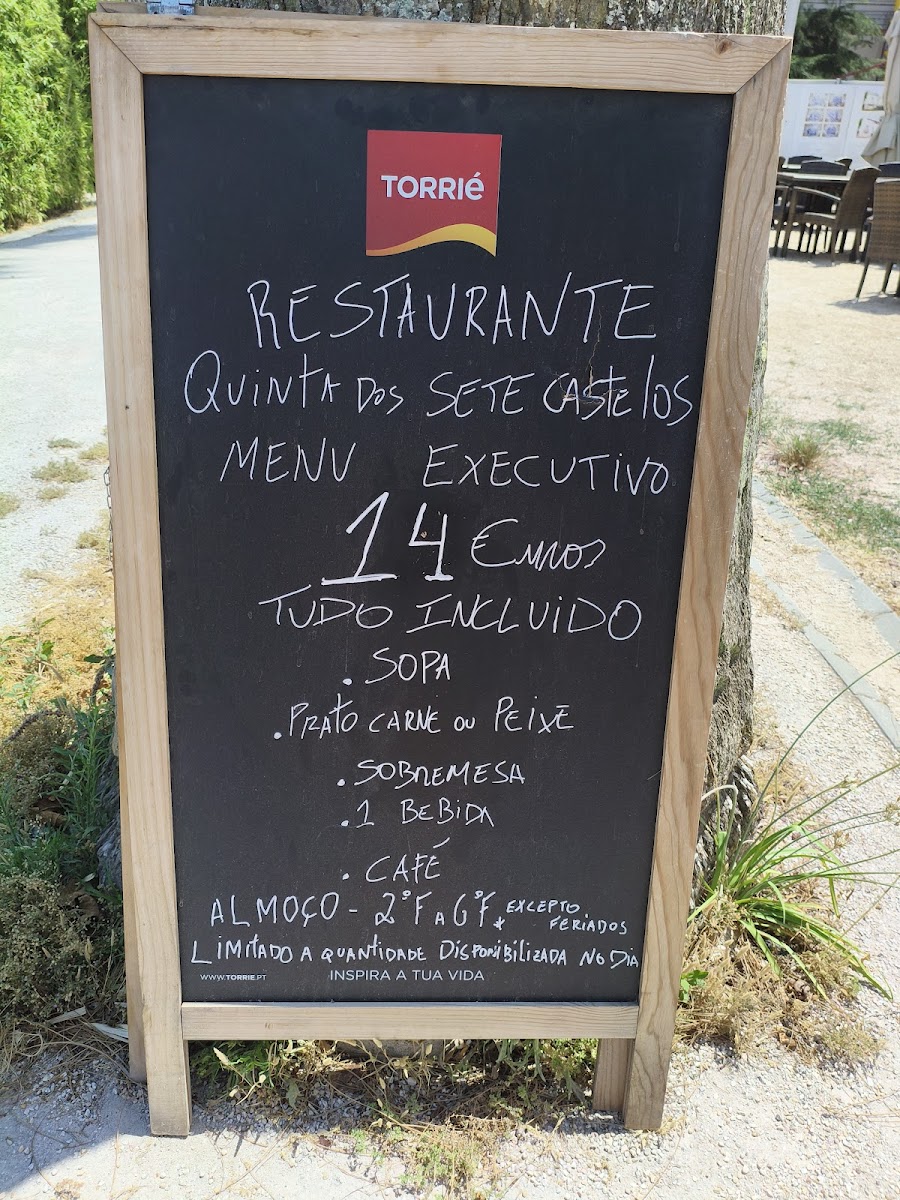 TORRIÉ
RESTAURANTE
QUINTA DOS SETE CASTELOS
MENU EXECUTIVO
14 EUROS
TUDO INCLUIDO
. SOPA
. PRATO CARNE OU PEIXE
. SOBREMESA
. 1 BEBIDA
. CAFÉ
ALMOÇO - 2ºF A 6ºF * EXCEPTO FERIADOS
LIMITADO A QUANTIDADE DISPONIBILIZADA NO DIA
WWW.TORRIE.PT INSPIRA A TUA VIDA